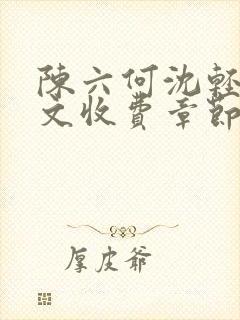 陳六何沈輕
文收費章節
厚皮爺